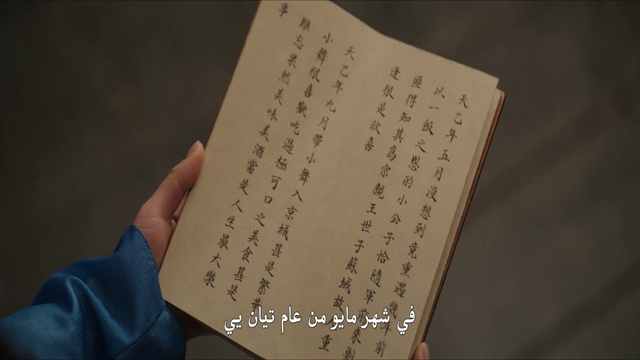 天乙年五月沒想到竟重遇幾年前
以一飯之恩的小公子恰隨軍前來剿
匪得知其為宗親王世子蘇域故重
逢很是欣喜
天乙年九月帶小舞入京城甚是繁華
小舞很喜歡吃過極可口之美食甚是
難忘果然美味美酒當是人生最大樂
事
في شهر مايو من عام تيان يي